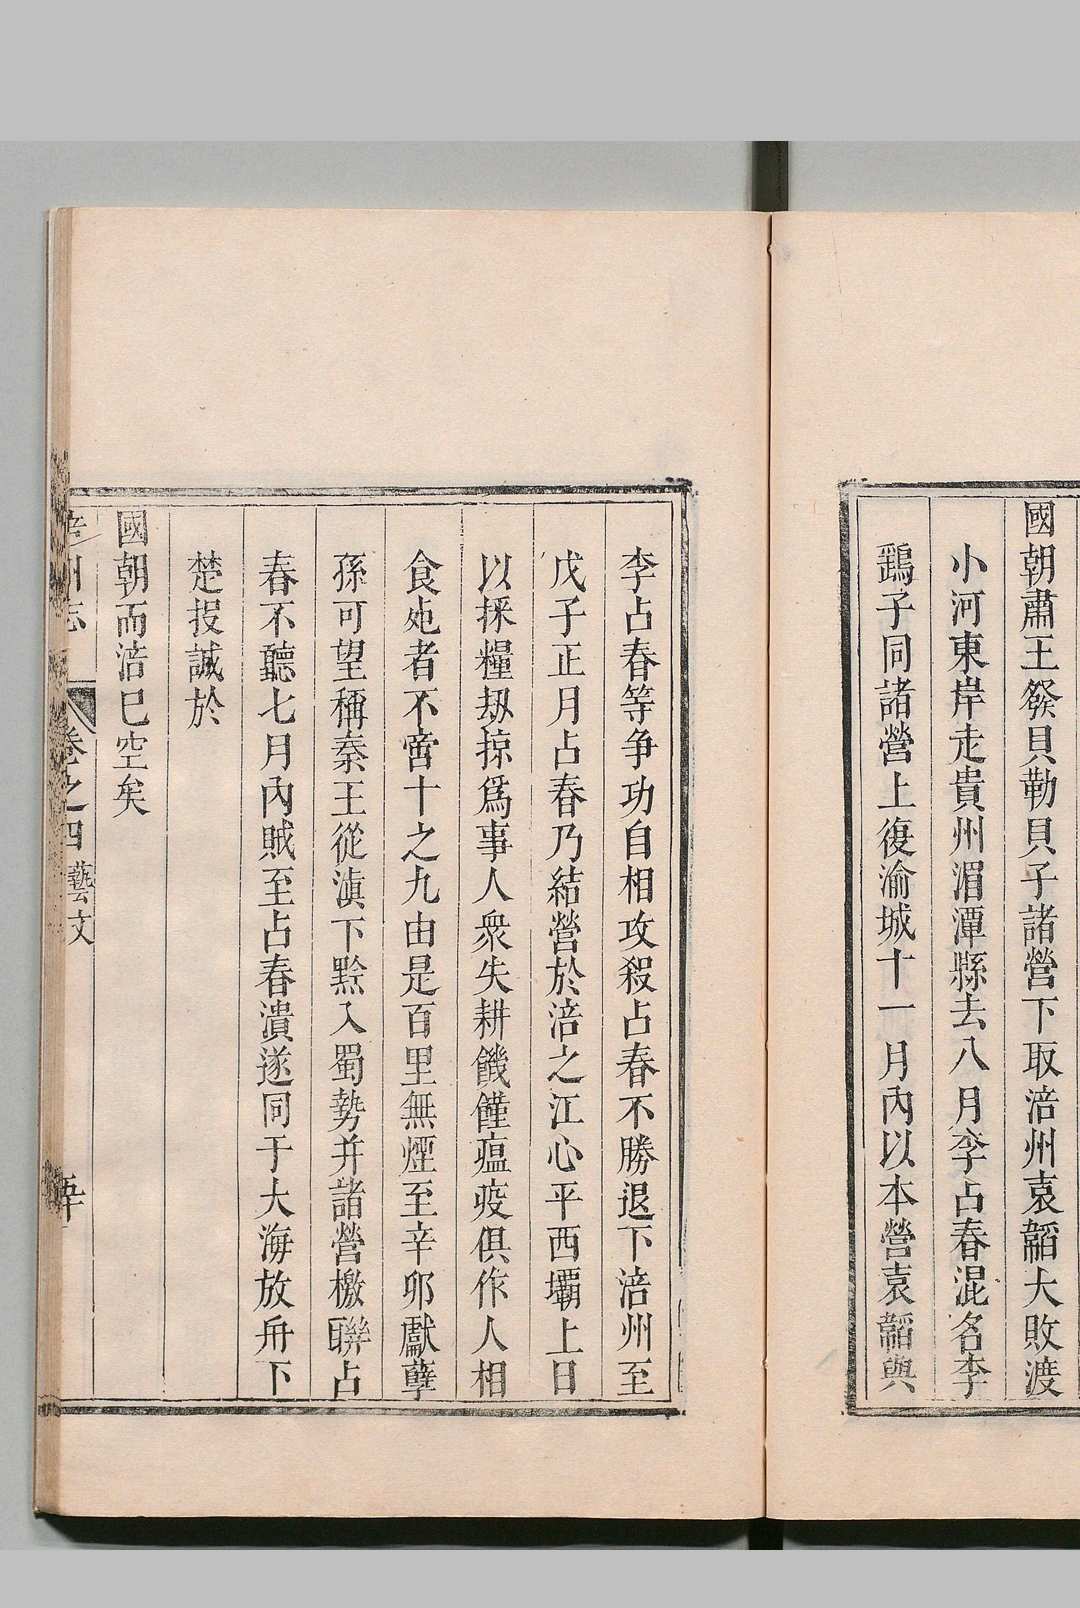 國朝肅王發貝勒貝子諸營下取涪州袁韜大敗渡
小河東岸走貴州湄潭縣去八月李占春混名李
鷂子同諸營上復渝城十一月內以本營袁韜與
李占春等爭功自相攻殺占春不勝退下涪州至
戊子正月占春乃結營於涪之江心平西壩上日
以採糧刼掠爲事人衆失耕饑饉瘟疫俱作人相
食死者不啻十之九由是百里無煙至辛卯獻孽
孫可望稱秦王從滇下黔入蜀勢并諸營檄聯占
春不聽七月內賊至占春潰遂同于大海放舟下
楚投誠於
國朝而涪已空矣
涪州志 卷之四 藝文